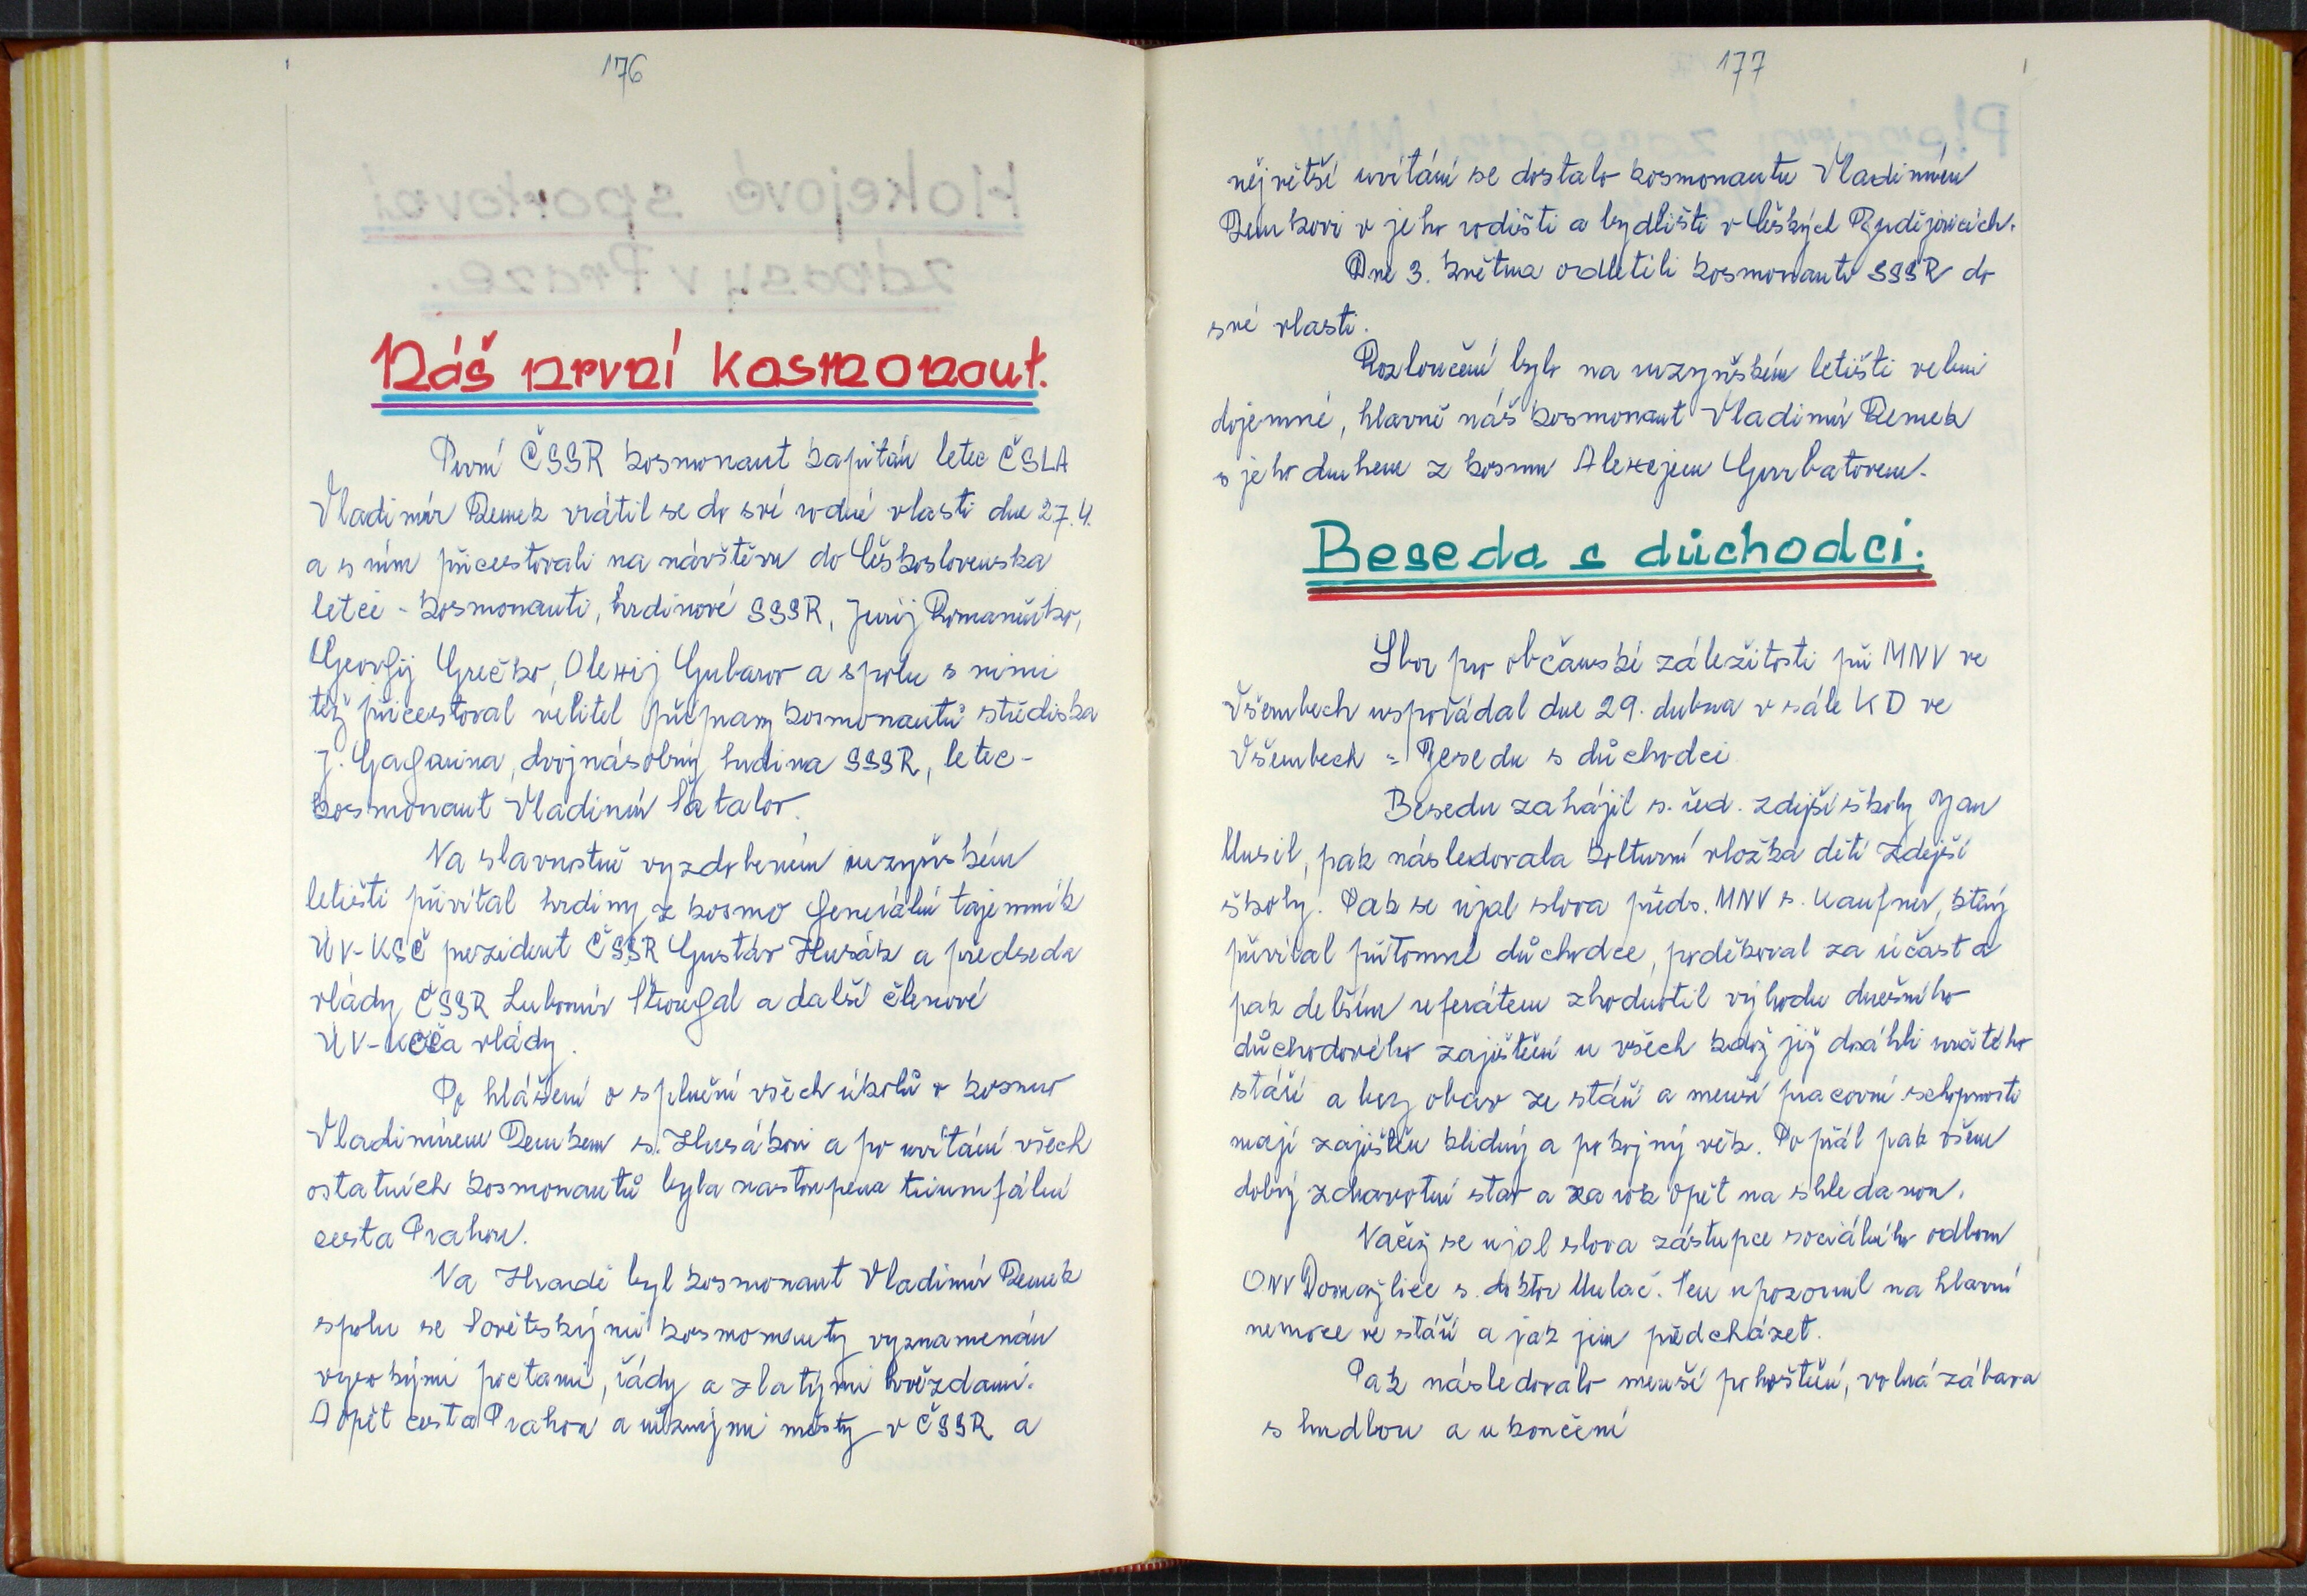 176
Náš první kosmonaut.
První ČSSR kosmonaut kapitán letec ČSLA
Vladimír Remek vrátil se do své rodné vlasti dne 27.4.
a s ním přicestovali na návštěvu do Československa
letci - kosmonauti, hrdinové SSSR, Jurij Romaněnko,
Georgij Grečko, Olexij Gubarov a spolu s nimi
též přicestoval velitel přípravy kosmonautů střediska
J. Gagarina, dvojnásobný hrdina SSSR, letec-
kosmonaut Vladimír Šatalov.
Na slavnostně vyzdobeném ruzyňském
letišti přivítal hrdiny z kosmo generální tajemník
ÚV-KSČ prezident ČSSR Gustáv Husák a předseda
vlády ČSSR Lubomír Štrougal a další členové
ÚV-KSČ a vlády.
Po hlášení o splnění všech úkolů v kosmu
Vladimírem Remkem s. Husákovi a po uvítání všech
ostatních kosmonautů byla nastoupena triumfální
cesta Prahou.
Na Hradě byl kosmonaut Vladimír Remek
spolu se Sovětskými kosmonauty vyznamenán
vysokými poctami, řády a zlatými hvězdami.
A opět cesta Prahou a různými městy v ČSSR a
177
největší uvítání se dostalo kosmonautu Vladimíru
Remkovi v jeho rodišti a bydlišti v Českých Budějovicích.
Dne 3. května odletěli kosmonauti SSSR do
své vlasti.
Rozloučení bylo na ruzyňském letišti velmi
dojemné, hlavně náš kosmonaut Vladimír Remek
s jeho druhem z kosmu Alexejem Gurbatovem.
Beseda s důchodci.
Sbor pro občanské záležitosti při MNV ve
Všerubech uspořádal dne 29. dubna v sále KD ve
Všerubech = Besedu s důchodci
Besedu zahájil s. řed. zdejší školy Jan
Musil, pak následovala kolturní vložka dětí zdejší
školy. Pak se ujal slova předs. MNV s. Kaufner, který
přivítal přítomné důchodce, poděkoval za účast a
pak delším referátem zhodnotil výhodu dnešního
důchodového zajištění u všech kdož již dosáhli určitého
stáří a bez obav ze stáří a menší pracovní schopnosti
mají zajištěn klidný a pokojný věk. Popřál pak všem
dobrý zdravotní stav a za rok opět na shledanou.
Načež se ujal slova zástupce sociálního odboru
ONV Domažlice s. doktor Mulač. Ten upozornil na hlavní
nemoce ve stáří a jak jim předcházet.
Pak následovalo menší pohoštění, volná zábava
s hudbou a ukončení